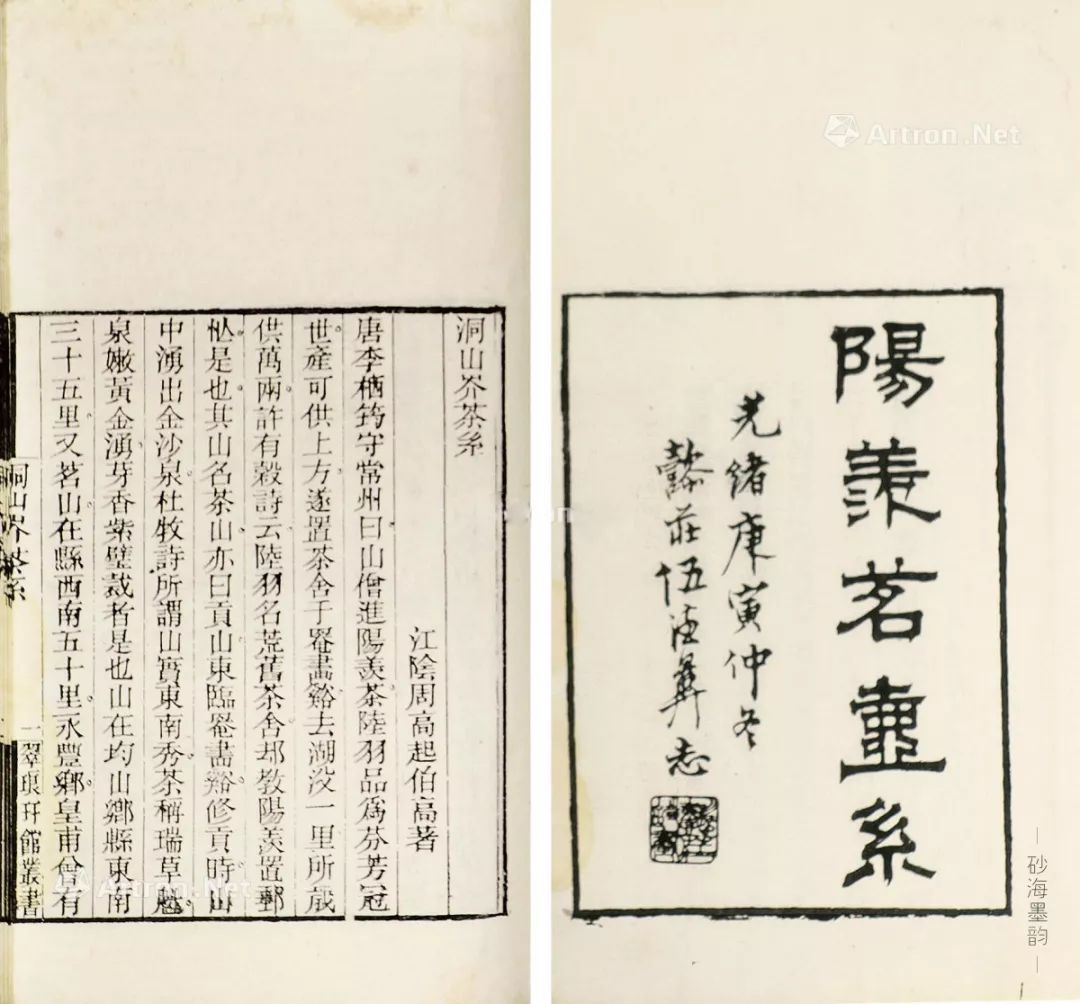 陽羨茗壷系
光緒庚寅仲冬
懿莊伍德彝志
洞山岕茶系
江陰周高起伯高著
唐李栖筠守常州曰山僧進陽羨茶陸羽品爲芬芳冠
世產可供上方遂置茶舍于罨畫谿去湖㳇一里所歲
供萬兩許有穀詩云陸羽名荒舊茶舍却教陽羨置郵
忙是也其山名茶山亦曰貢山東臨罨畫谿修貢時山
中湧出金沙泉杜牧詩所謂山實東南秀茶稱瑞草魁
泉嫩黃金湧芽香紫璧裁者是也山在均山鄉縣東南
三十五里又茗山在縣西南五十里永豐鄉皇甫曾有
洞山岕茶系
一
翠琅玕館叢書
Artron.Net
Artron.Net
砂海墨韵